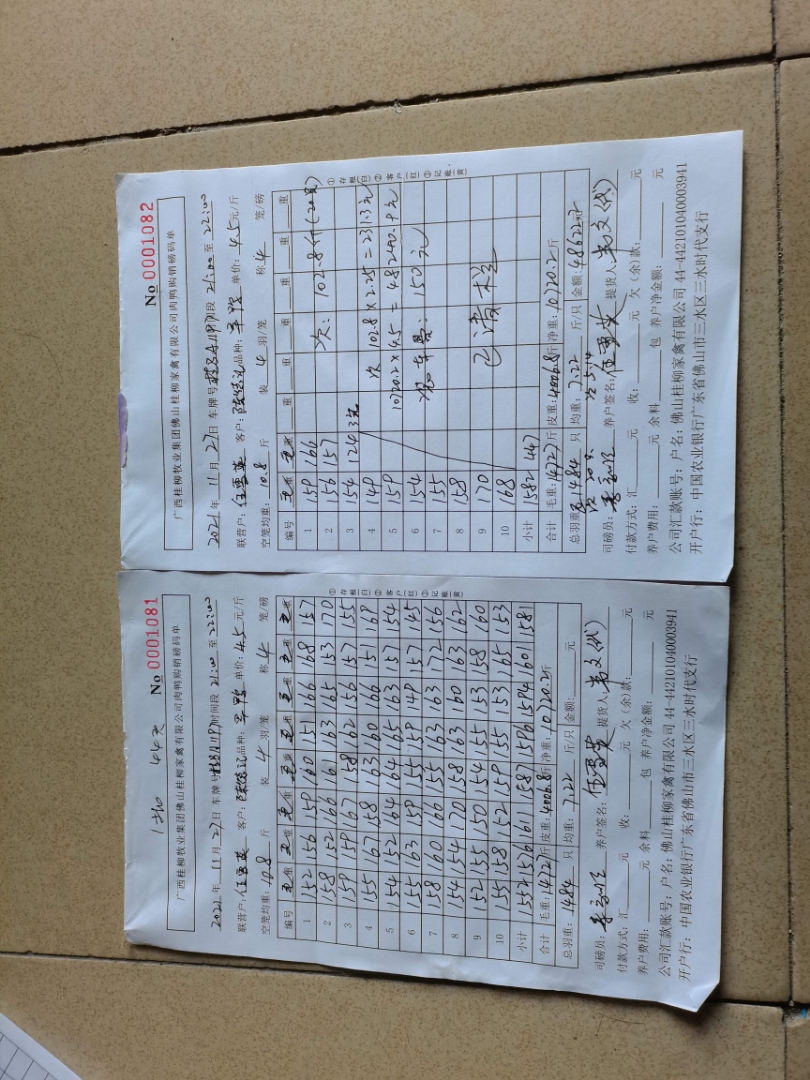 1批 44天
No 0001081
广西桂柳牧业集团佛山桂柳家禽有限公司肉鸭购销磅码单
2021年 11月 27日 车牌号 时间段 21:00 至 22:00
联营户: 客户: 品种: 单价: 4.5元/斤
空笼均重: 10.8 斤 装 4 羽/笼 称 4 笼/磅
编号 毛重 毛重 毛重 毛重 毛重 毛重 毛重 毛重
1 152 156 159 160 151 166 168 157
2 158 152 166 161 163 165 153 170
3 159 159 167 158 162 156 157 155
4 155 167 158 163 160 166 151 169
5 154 152 164 164 165 163 157 154
6 155 163 159 155 159 149 157 145
7 158 160 166 155 163 163 172 156
8 154 154 170 158 163 160 163 162
9 152 155 150 154 155 153 158 160
10 155 158 152 159 155 153 165 153
小计 1552 1576 1611 1587 1596 1594 1601 1581
合计 毛重: 14727斤 皮重: 4006.8斤 净重: 10720.2斤
总羽重: 1484 只 均重: 7.22 斤/只 金额: 元
①存根(白) ②客户(红) ③记账(黄)
司磅员: 养户签名: 提货人:
付款方式: 汇 元 收: 元 欠(余)款: 元
养户费用: 元 余料 包 养户净金额: 元
公司汇款账号: 户名: 佛山桂柳家禽有限公司 44-442101040003941
开户行: 中国农业银行广东省佛山市三水区三水时代支行
No 0001082
广西桂柳牧业集团佛山桂柳家禽有限公司肉鸭购销磅码单
2021年 11月 27日 车牌号 时间段 21:00 至 22:00
联营户: 客户: 品种: 单价: 4.5元/斤
空笼均重: 10.8 斤 装 4 羽/笼 称 4 笼/磅
编号 毛重 毛重 重 重 重 重 重
1 159 166
2 156 157 次: 102.8斤
3 154 124 3笼
4 149 次 102.8 × 2.25 = 231.3元
5 159 10720.2 × 4.5 = 48240.9元
6 154 150元
7 155
8 158
9 170
10 168
小计 1582 447
合计 毛重: 14727斤 皮重: 4006.8斤 净重: 10720.2斤
总羽重: 1484 只 均重: 7.22 斤/只 金额: 48622元
①存根(白) ②客户(红) ③记账(黄)
司磅员: 养户签名: 提货人:
付款方式: 汇 元 收: 元 欠(余)款: 元
养户费用: 元 余料 包 养户净金额: 元
公司汇款账号: 户名: 佛山桂柳家禽有限公司 44-442101040003941
开户行: 中国农业银行广东省佛山市三水区三水时代支行